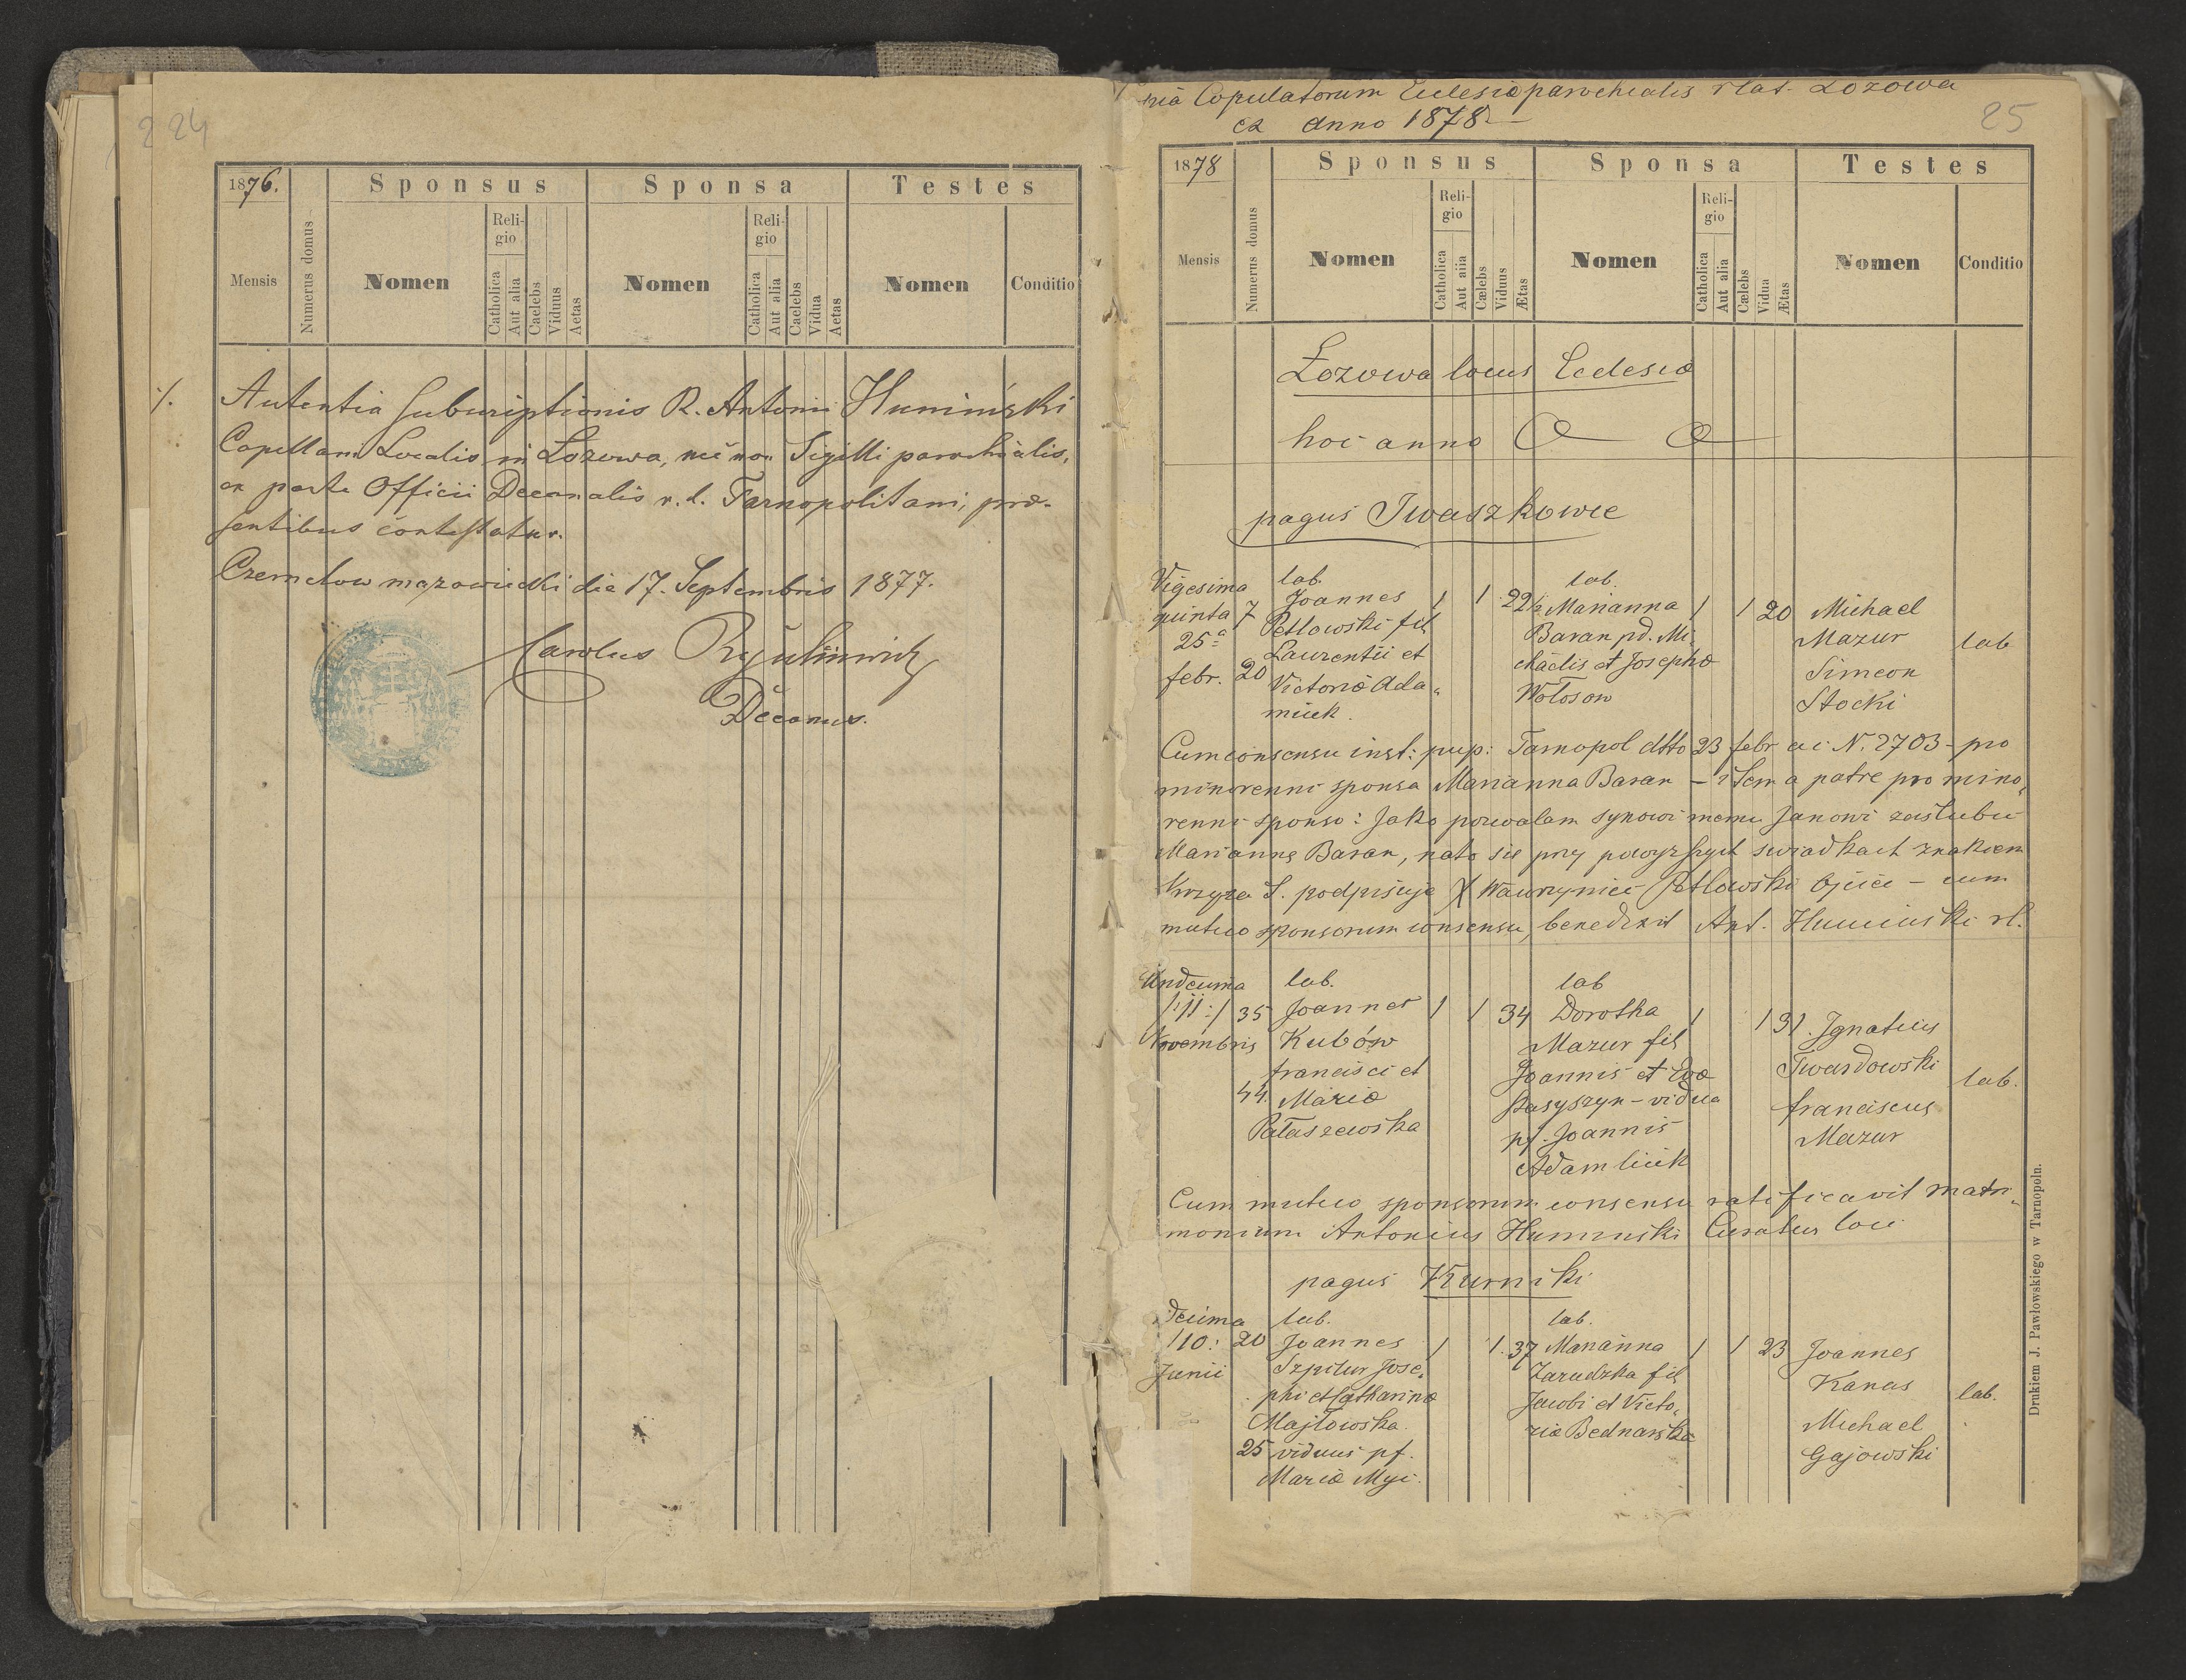 24
1876.
Sponsus
Sponsa
Testes
Mensis
Numerus domus
Nomen
Religio
Catholica
Aut alia
Caelebs
Viduus
Aetas
Nomen
Religio
Catholica
Aut alia
Caelebs
Vidua
Aetas
Nomen
Conditio
/.
Autentia subscriptionis R. Antonii Huminski
Capellani Localis in Łozowa, nec non Sigilli parochialis,
ex parte Officii Decanalis r. l. Tarnopolitani, præ-
sentibus contestatur.
Czernelow mazowiecki die 17. Septembris 1877.
Carolus
Decanus.
Copulatorum Ecclesiæ parochialis r lat. Łozowa
ex anno 1878
25
1878
Sponsus
Sponsa
Testes
Mensis
Numerus domus
Nomen
Religio
Catholica
Aut alia
Cælebs
Viduus
Ætas
Nomen
Religio
Catholica
Aut alia
Cælebs
Vidua
Ætas
Nomen
Conditio
Łozowa locus Eclesiæ
hoc anno
pagus Iwaszkowce
Vigesima
quinta 7
25ª
febr. 20
lab.
Joannes 1 1 22½
Petlowski fil
Laurentii et
Victoriæ Ada„
miuk.
lab.
Marianna 1 1 20
Baran pd. Mi-
chaelis et Josephæ
Wołosow
Michael
Mazur
Simeon
Stocki
lab
Cum consensu inst: pup: Tarnopol dtto 23 febr ai N. 2703 - pro
minorenni sponsa Marianna Baran - item a patre pro mino„
renni sponso: Jako pozwalam synowi memu Janowi zaslubic
Marianne Baran, nato sie przy powyzszych swiadkach znakiem
krzyza S. podpisuje X Wawrzyniec Petlowski Ojciec - cum
mutuo sponsorum consensu, benedixit Ant. Huminski rl.
Undecima
/:11:/ 35
Novembris
44.
lab.
Joannes 1 1 34
Kubów
francisci et
Mariæ
Pałaszewska
lab
Dorotha 1 1 31.
Mazur fil
Joannis et Evæ
Stasyszyn - vidua
pf. Joannis
Adamliuk
Ignatius
Twardowski
franciscus
Mazur
lab.
Cum mutuo sponsorum consensu ratificavit matri„
monium Antonius Huminski Curatus loci
pagus Kurniki
Decima
/10: 20
Junii
25
lab.
Joannes 1 1. 37
Szpitur Jose„
phi et Catharinæ
Majlowska.
viduus pf.
Mariæ Myc.
lab.
Marianna 1 1 23
Zarudzka fil
Jacobi et Victo„
riæ Bednarska
Joannes
Kanas
Michael
Gajowski
lab.
Drukiem J. Pawłowskiego w Tarnopolu.